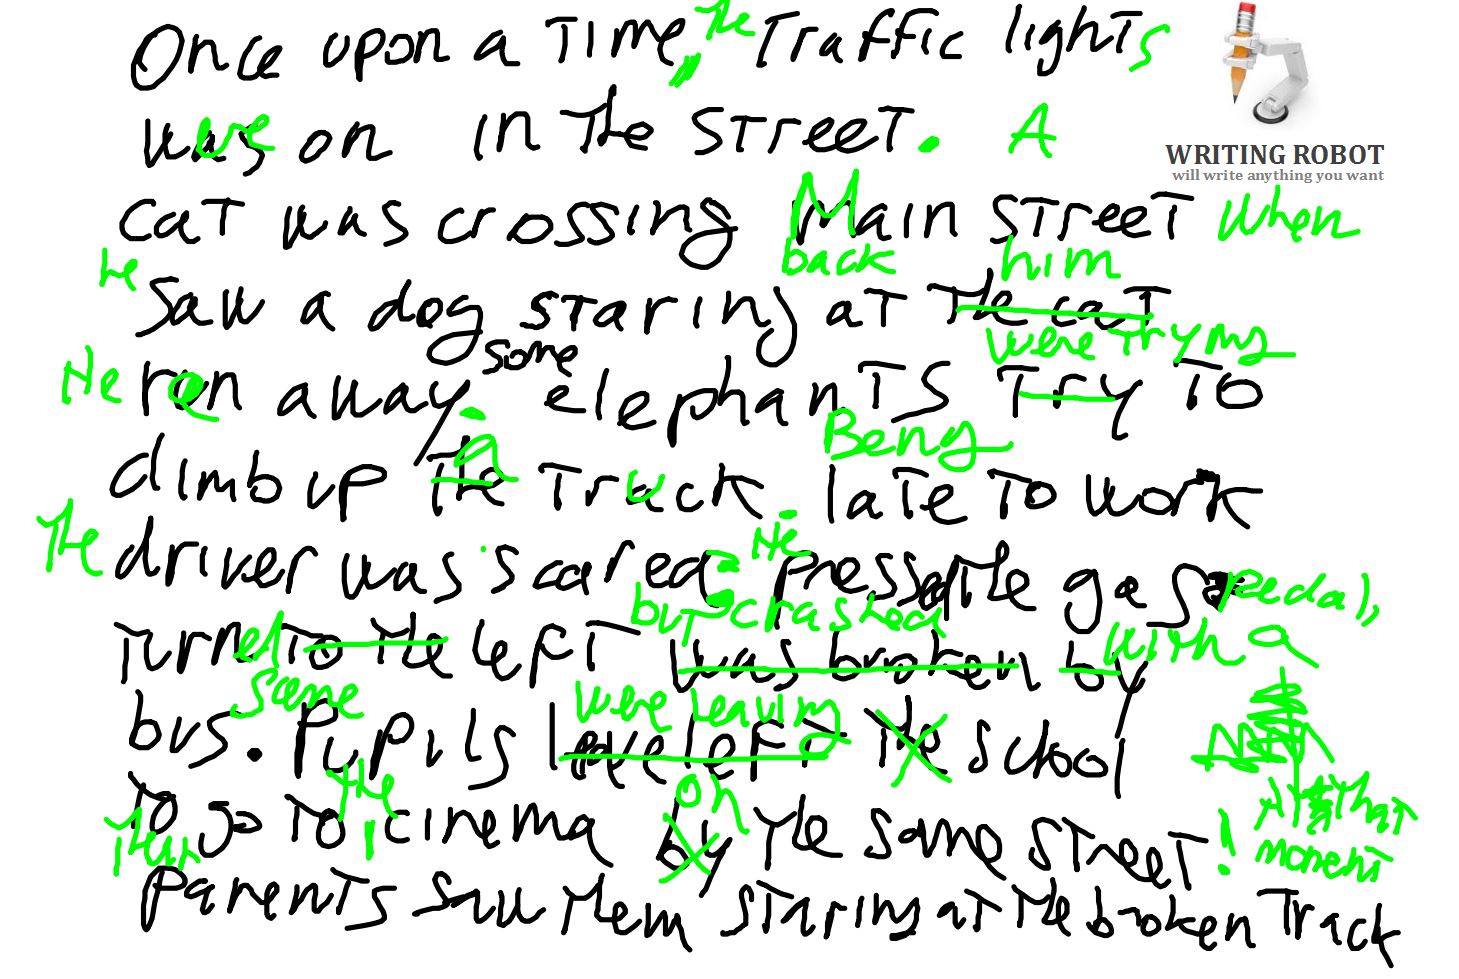 Once upon a Time, the Traffic lights
was were on in The STreeT. A
caT was crossing Main STreeT when
he Saw a dog sTaring back aT The caT him
He ran away some elephanTs Try were Trying To
climb up The a Truck. Being laTe To work
The driver was scared. He pressed The gas pedal,
Turned To The lefT was broken buT crashed by wiTh a
bus. Some Pupils leave lefT were leaving The school
To go To The cinema by on The same sTreeT! AT ThaT momenT
Their ParenTs saw Them sTaring aT The broken Track
WRITING ROBOT
will write anything you want